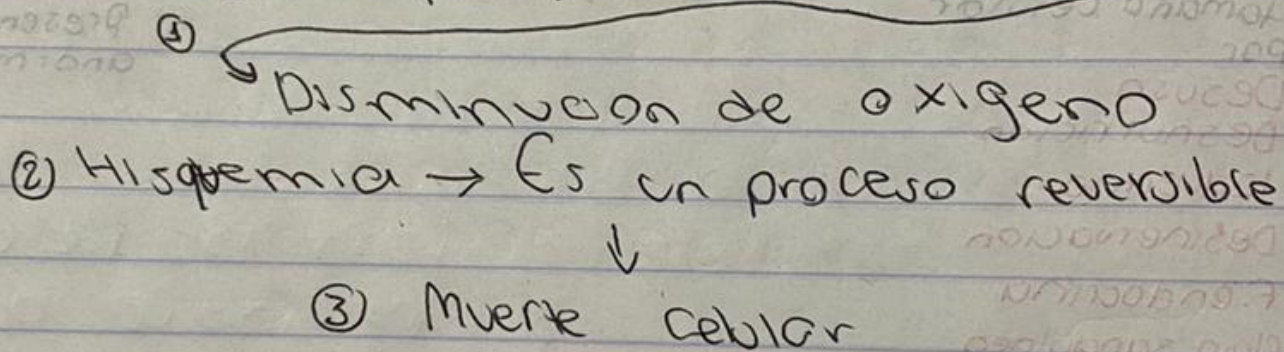 ①
Disminucion de oxigeno
② Hisquemia → Es un proceso reversible
↓
③ Muerte celular